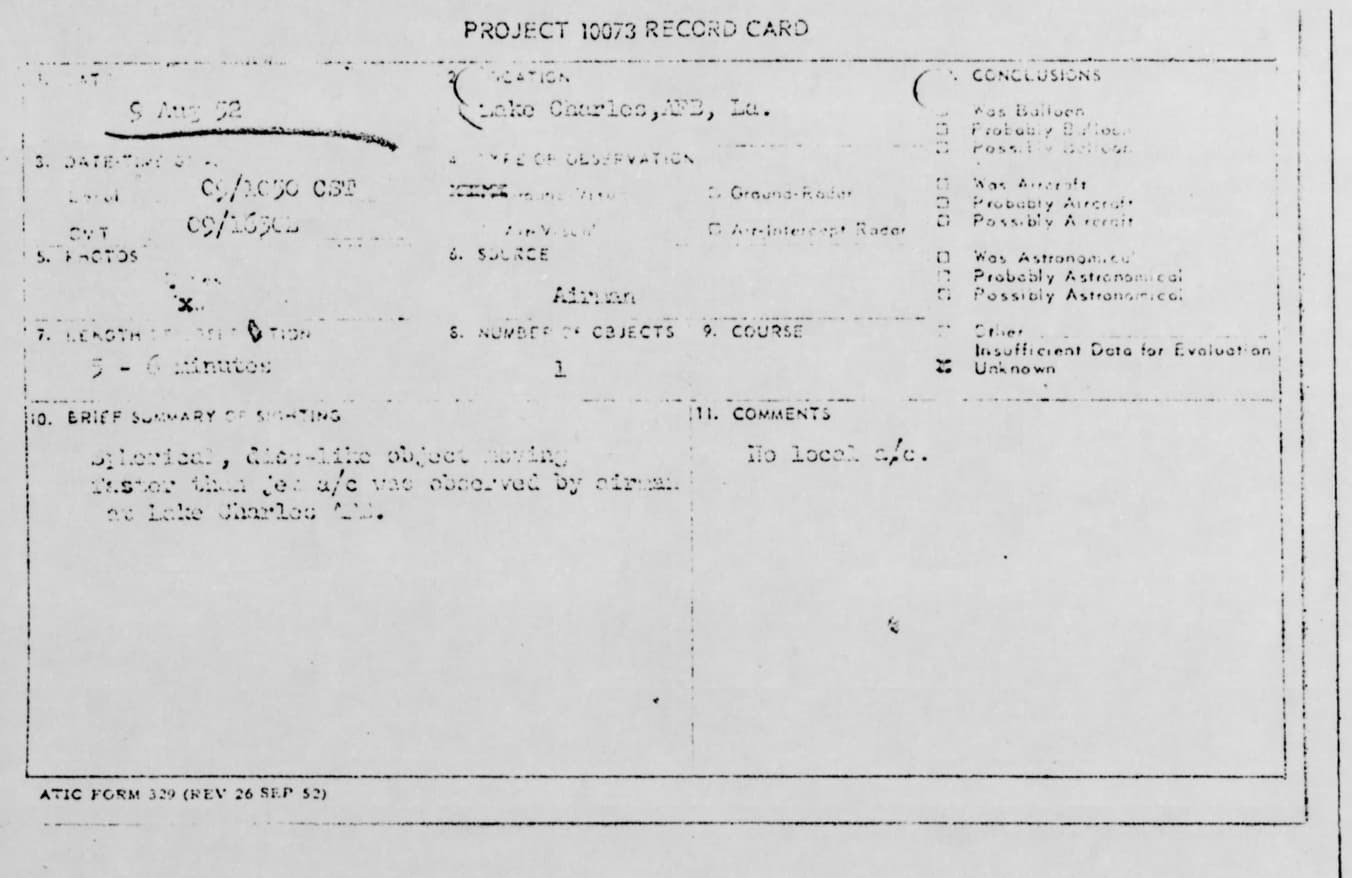 PROJECT 10073 RECORD CARD
9 Aug 52
2. LOCATION
Lake Charles, AFB, La.
CONCLUSIONS
Was Balloon
Probably Balloon
Possibly Balloon
Was Aircraft
Probably Aircraft
Possibly Aircraft
Was Astronomical
Probably Astronomical
Possibly Astronomical
Other
Insufficient Data for Evaluation
Unknown
3. DATE-TIME
Local 09/1050 CST
GMT
4. TYPE OF OBSERVATION
Ground-Visual
Ground-Radar
Air-Visual
Air-Intercept Radar
5. PHOTOS
x
6. SOURCE
Airman
7. LENGTH OF OBSERVATION
5 - 6 minutes
8. NUMBER OF OBJECTS
1
9. COURSE
10. BRIEF SUMMARY OF SIGHTING
Spherical, disc-like object moving
faster than jet a/c was observed by airman
at Lake Charles AFB.
11. COMMENTS
No local a/c.
ATIC FORM 329 (REV 26 SEP 52)